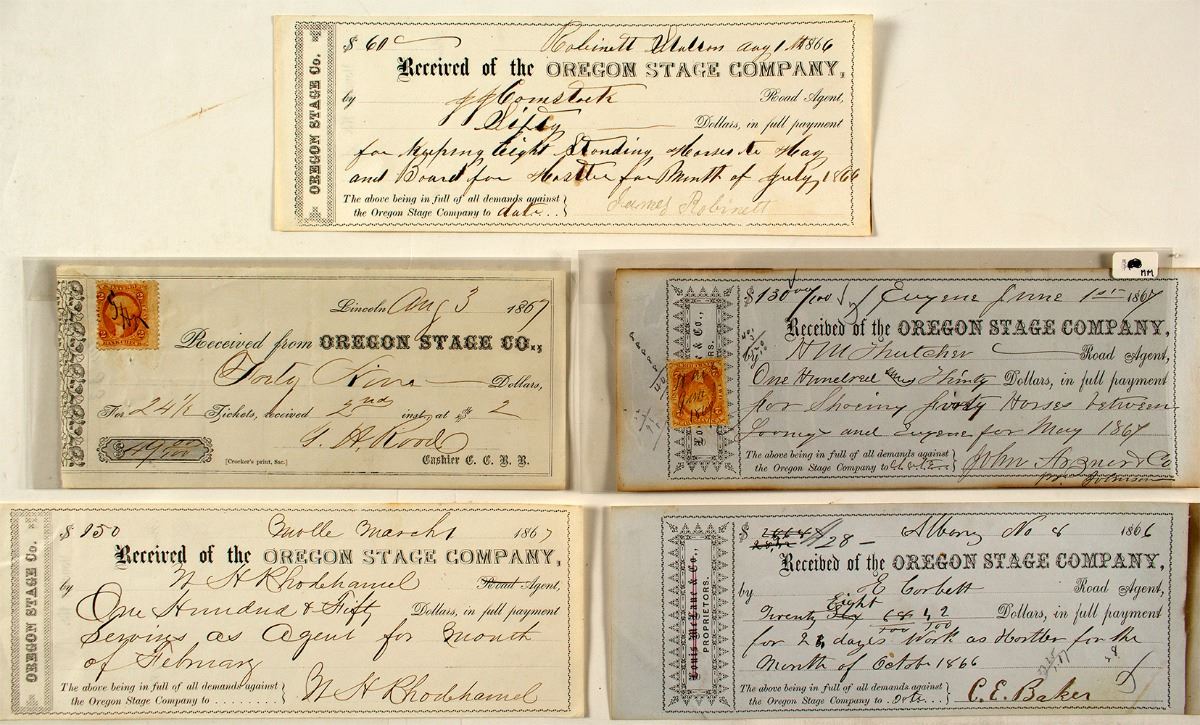 OREGON STAGE Co.
$ 60 Robinett Station Aug 1st 1866
Received of the OREGON STAGE COMPANY,
by J J Comstock Road Agent,
Sixty Dollars, in full payment
for Keeping Eight Standing Horses to Hay
and Board for Hostler for Month of July 1866
The above being in full of all demands against
the Oregon Stage Company to date...
James Robinett
Lincoln Aug 3 1867
Received from OREGON STAGE CO.,
Forty Nine Dollars,
For 24½ Tickets, received 2nd inst, at $ 2
$49.00
Cashier C. C. R. R.
[Crocker's print, Sac.]
$130 00/100 Eugene June 1st 1867
Received of the OREGON STAGE COMPANY,
H M Thatcher Road Agent,
One Hundred Thirty Dollars, in full payment
for Shoeing Horses between
and Eugene for May 1867
The above being in full of all demands against
the Oregon Stage Company to date
John & Co
Johnson
MM
OREGON STAGE Co.
$ 150 March 1 1867
Received of the OREGON STAGE COMPANY,
by N H Rhodehamel Road Agent,
One Hundred & Fifty Dollars, in full payment
Services as Agent for Month
of February
The above being in full of all demands against
the Oregon Stage Company to
N H Rhodehamel
Louis McLane & Co.,
PROPRIETORS.
$28 Albany No 8 1866
Received of the OREGON STAGE COMPANY,
by E Corbett Road Agent,
Twenty Eight Dollars, in full payment
for days Work as Hostler for the
Month of October 1866
The above being in full of all demands against
the Oregon Stage Company to date
C. E. Baker